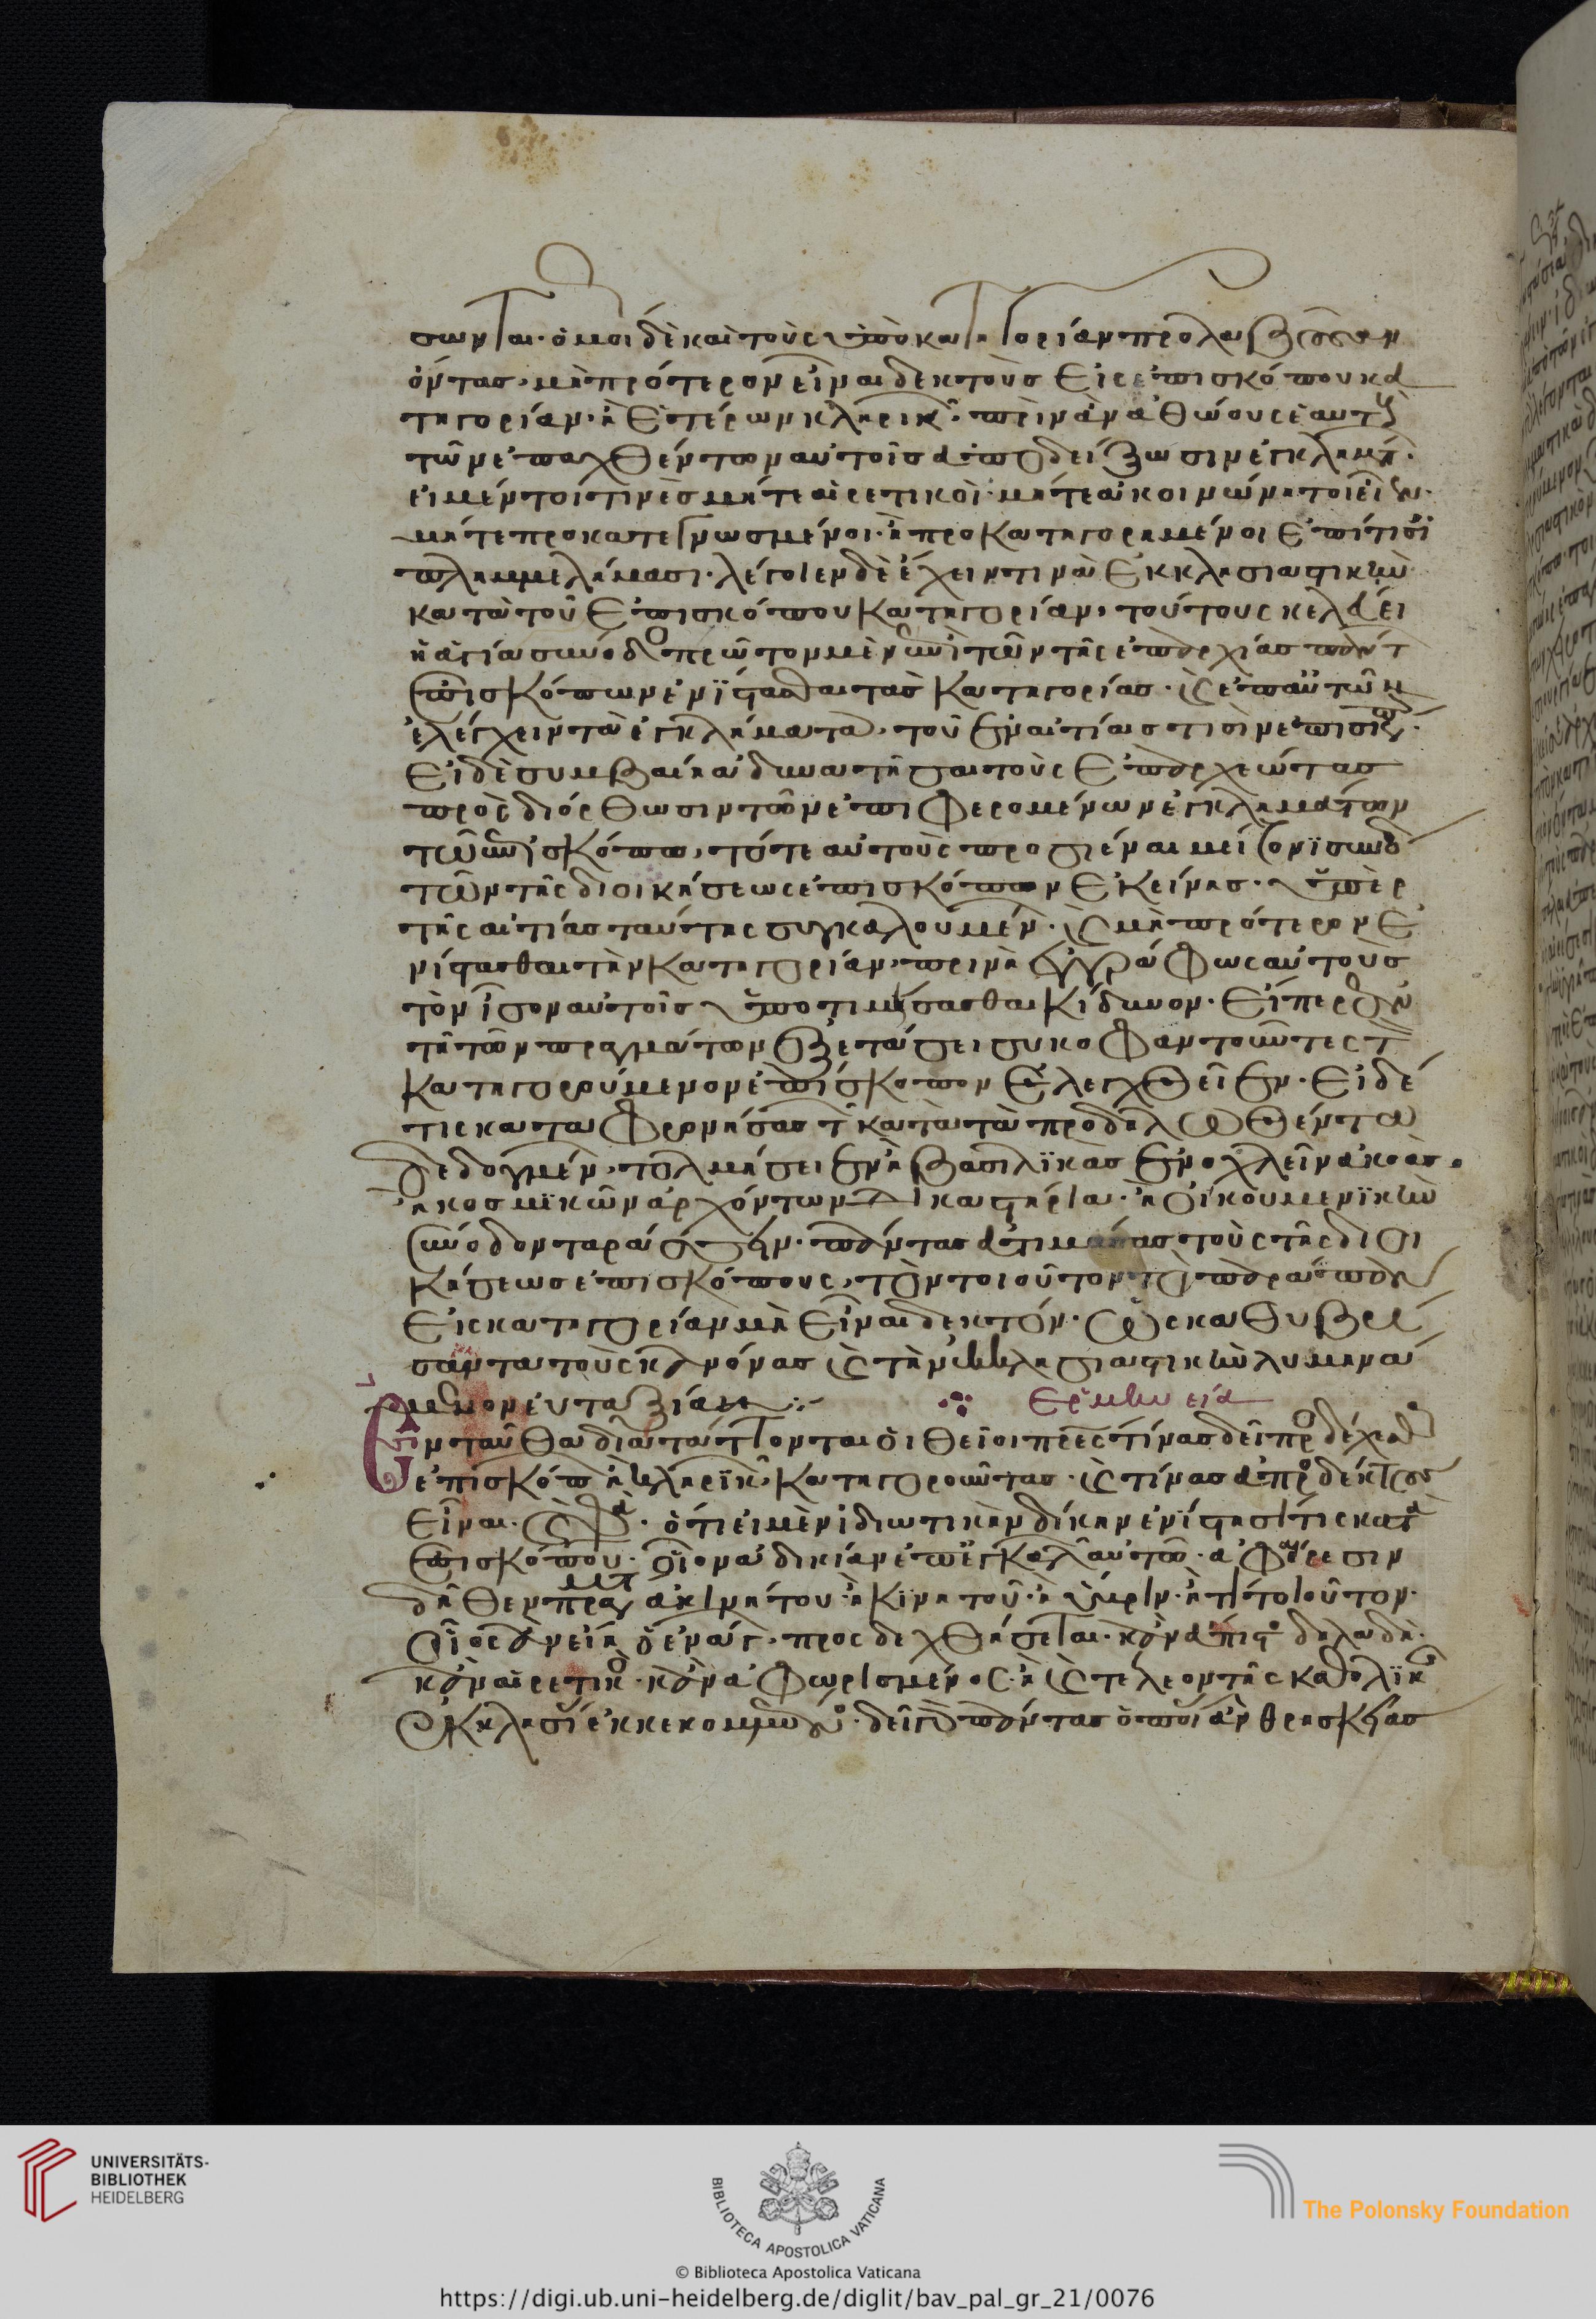 σωνται. ὁμοί δὲ καὶ τοὺς ὑπὸ κατηγορίαν προλαβοῦσαν
ὄντας, μὴ πρότερον εἶναι δεκτοὺς εἰς ἐπισκόπου κα
τηγορίαν. ἢ ἑτέρων κληρικῶν. πρὶν ἂν ἀθώους ἑαυτοὺς
τῶν ἐπαχθέντων αὐτοῖς ἀποδείξωσιν ἐγκλημάτ.
εἰ μέντοι τινὲς μήτε αἱρετικοὶ. μήτε ἀκοινώνητοι εἶεν.
μήτε προκατεγνωσμένοι. ἢ προκατηγορημένοι ἐπί τισι
πλημμελήμασι. λέγοιεν δὲ ἔχειν τινὰ ἐκκλησιαστικὴν
κατὰ τοῦ ἐπισκόπου κατηγορίαν, τούτους κελεύει
ἡ ἁγία σύνοδος πρῶτον μὲν ἐπὶ τῶν τῆς ἐπαρχίας πάντ
ἐπισκόπων ἐνΐστασθαι τὰς κατηγορίας. καὶ ἐπ αὐτῶν
ἐλέγχειν τὰ ἐγκλήματα, τοῦ ἐν αἰτίαις τισὶν ἐπισκόπου.
Εἰ δὲ συμβαίη ἀδυνατῆσαι τοὺς ἐπαρχεώτας
πρὸς διόρθωσιν τῶν ἐπιφερομένων ἐγκλημάτων
τῶ ἐπισκόπω, τότε αὐτοὺς προσιέναι μείζονι συνόδ
τῶν τῆς διοικήσεως ἐπισκόπων ἐκείνης. ὑπὲρ
τῆς αἰτίας ταύτης συγκαλουμέν. καὶ μὴ πρότερον ἐ
νίστασθαι τὴν κατηγορίαν, πρινὴ ἐγγράφως αὐτοὺς
τὸν ἴσον αὐτοῖς ὑποτιμήσασθαι κίνδυνον. εἴπερ ἐν
τῆ τῶν πραγμάτων ἐξετάσει συκοφαντοῦντες τ
κατηγορούμενον ἐπίσκοπον ἐλεγχθεῖεν. Εἰ δέ
τις καταφρονήσας τ κατὰ τὰ προδηλωθέντα
δεδογμέν, τολμήσει ἐν ἢ βασιλϊκὰς ἐνοχλεῖν ἀκοὰς.
ἢ κοσμϊκῶν ἀρχόντων δικαστήρια. ἢ οἰκουμενϊκὴν
σύνοδον ταράσσειν. πάντας ἀτιμάσας τοὺς τῆς διοι
κήσεως ἐπισκόπους, τὸν τοιοῦτον τὸ παράπαν
εἰς κατηγορίαν μὴ εἶναι δεκτόν. ὡς καθυβρί
σαντα τοὺς κανόνας καὶ τὴν ἐκκλησιαστικὴν λυμηνά
μενον εὐταξίαν :~ Ἑρμηνεία
Ἐνταῦθα διατάττονται οἱ θεῖοι πρες τίνας δεῖ προσδέχεσθ
ἐπισκόπ ἢ κληρϊκ, κατηγοροῦντας. καὶ τίνας ἀπροσδέκτους
εἶναι. ὅτι εἰ μὲν ἰδιωτικὴν δίκην ἐνΐστησί τις κατὰ
ἐπισκόπου. οἷον ἀδικίαν ἐπεγκαλ αὐτῶ. ἀφαίρεσιν
δῆθεν πραγμάτ ἀκινήτου ἢ κινητοῦ. ἢ ὕβριν. ἤ τι τοιοῦτον.
οἷος ἂν εἴη ὁ ἐνάγ, προσδεχθήσεται. κἂν ἄπιστ δηλαδὴ.
κἂν αἱρετικὸ. κἂν ἀφωρισμένος. ἢ καὶ τέλεον τῆς καθολϊκ
ἐκκλησί ἐκκεκομμένο. δεῖ πάντας ὁποί ἂν θρησκείας
UNIVERSITÄTS-
BIBLIOTHEK
HEIDELBERG
BIBLIOTECA APOSTOLICA VATICANA
The Polonsky Foundation
© Biblioteca Apostolica Vaticana
https://digi.ub.uni-heidelberg.de/diglit/bav_pal_gr_21/0076